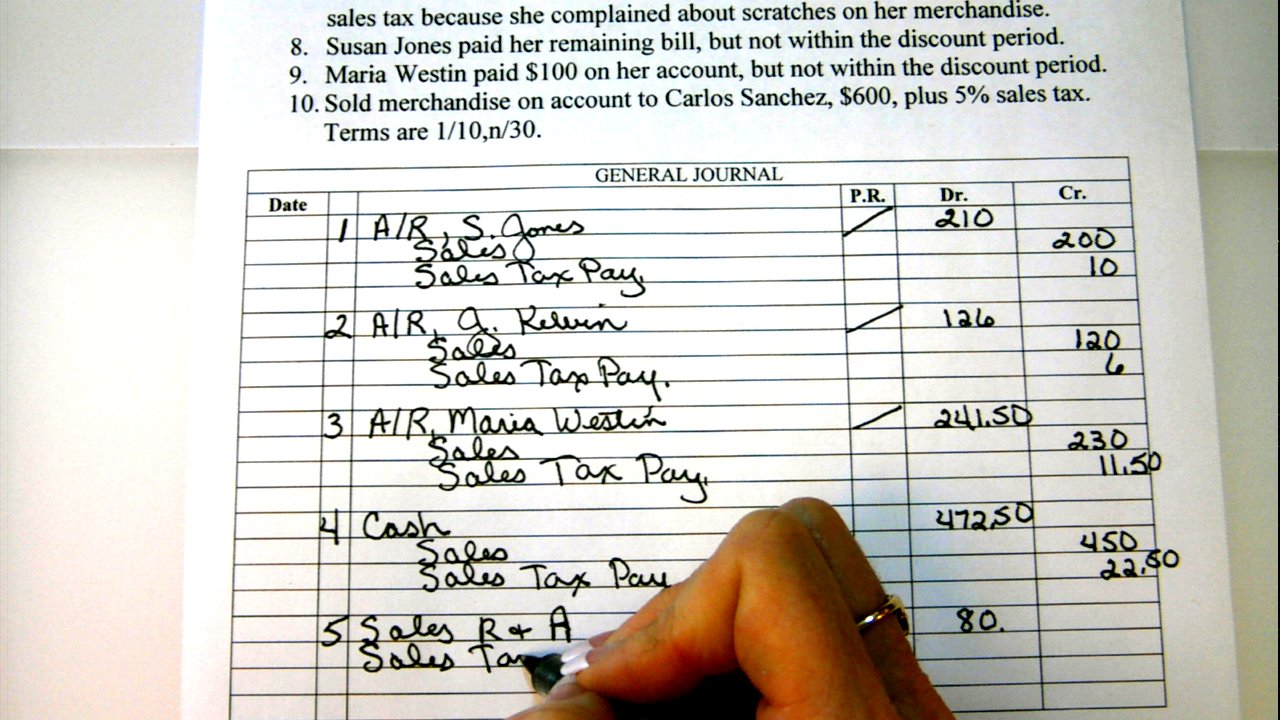 sales tax because she complained about scratches on her merchandise.
8. Susan Jones paid her remaining bill, but not within the discount period.
9. Maria Westin paid $100 on her account, but not within the discount period.
10. Sold merchandise on account to Carlos Sanchez, $600, plus 5% sales tax.
Terms are 1/10,n/30.
GENERAL JOURNAL
Date P.R. Dr. Cr.
1 A/R, S. Jones 210
Sales 200
Sales Tax Pay. 10
2 A/R, J. Kelvin 126
Sales 120
Sales Tax Pay. 6
3 A/R, Maria Westin 241.50
Sales 230
Sales Tax Pay. 11.50
4 Cash 472.50
Sales 450
Sales Tax Pay 22.50
5 Sales R & A 80.
Sales Tax